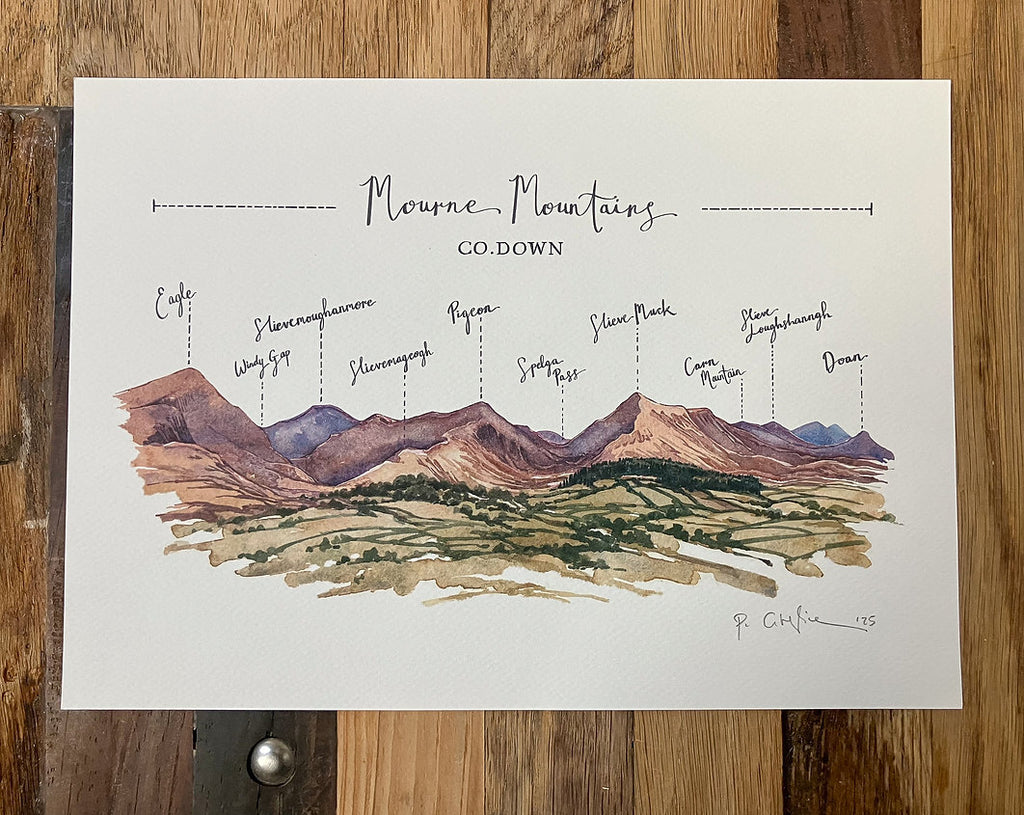 Mourne Mountains
CO.DOWN
Eagle
Slievemoughanmore
Windy Gap
Slievemageogh
Pigeon
Spelga
Pass
Slieve Muck
Carn
Mountain
Slieve
Loughshanngh
Doan
'25